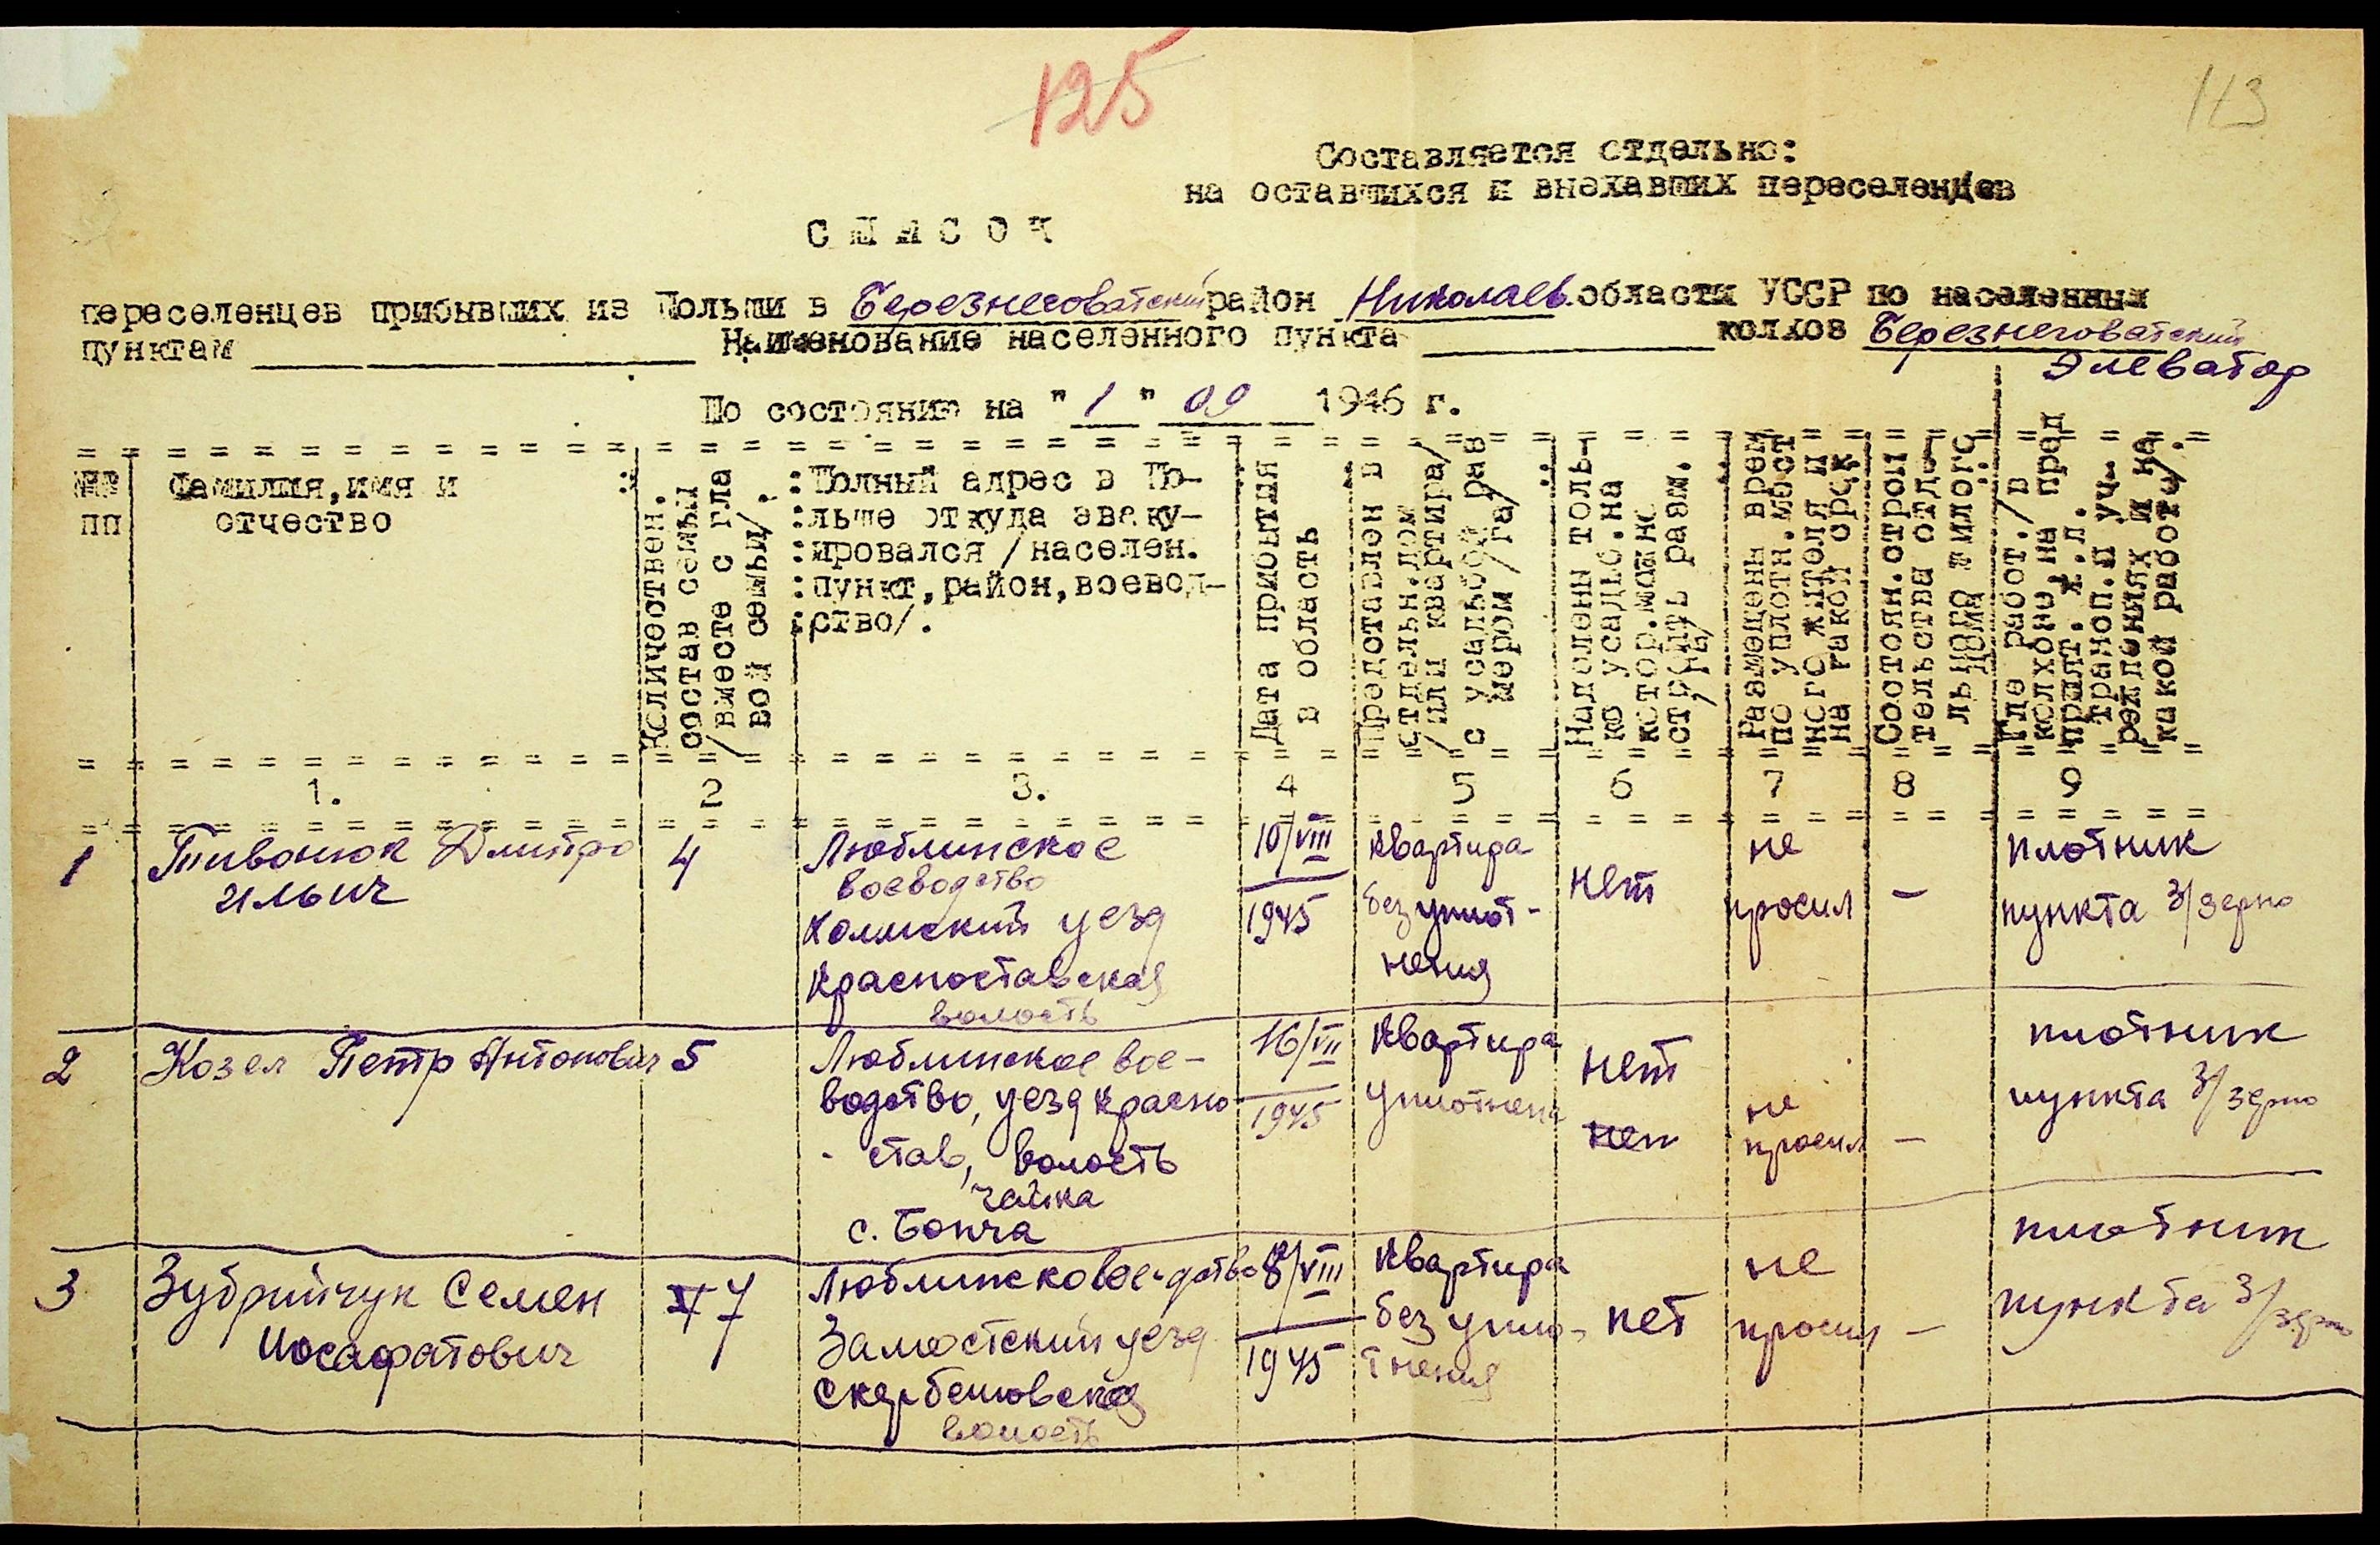 125
113
Составляется отдельно:
на оставшихся и внехавших переселенцев
С П И С О К
переселенцев прибывших из Польши в Березнеговатский район Николаев. области УССР по населенным
пунктам Наименование населенного пункта колхоз Березнеговатский
Элеватор
По состоянию на "1" 09 1946 г.
№№
пп
Фамилия, имя и
отчество
Количествен.
состав семьи
/вместе с гла
вой семьи/.
:Полный адрес в По-
:льше откуда эваку-
:ировался /населен.
:пункт, район, воевод-
:ство/.
Дата прибытия
в область
Предоставлен в
отдельн.дом
/или квартира/
с усадьбой раз
мером /га/
Наделены толь-
ко усадьб. на
котор. можно
строить разм.
/га/
Размещены врем
по уплотн. мест
ного жителя и
на какой срок
Состоян. строи
тельства отде-
льного жилого
дома
Где работ. /в
колхозе, на пред
прият. ж.д.
трансп. и уч-
реждениях и на
какой работе/.
1. 2 3. 4 5 6 7 8 9
1 Тивонюк Дмитро
Ильич
4
Люблинское
воеводство
Холмский уезд
Красноставская
волость
10/VIII
1945
квартира
без уплот-
нения
нет
не
просил
-
плотник
пункта З/зерно
2 Козел Петр Антонович 5
Люблинское вое-
водство, уезд красно
- став, волость
чайка
с. Бонча
16/VII
1945
Квартира
уплотнена
нет
нет
не
просил
-
плотник
пункта З/зерно
3 Зубрийчук Семен
Иосафатович
7
Люблинско воеводство
Замостский уезд
Скербешовская
волость
8/VIII
1945
квартира
без упло-
тнения
нет
не
просил
-
плотник
пункта З/зерно